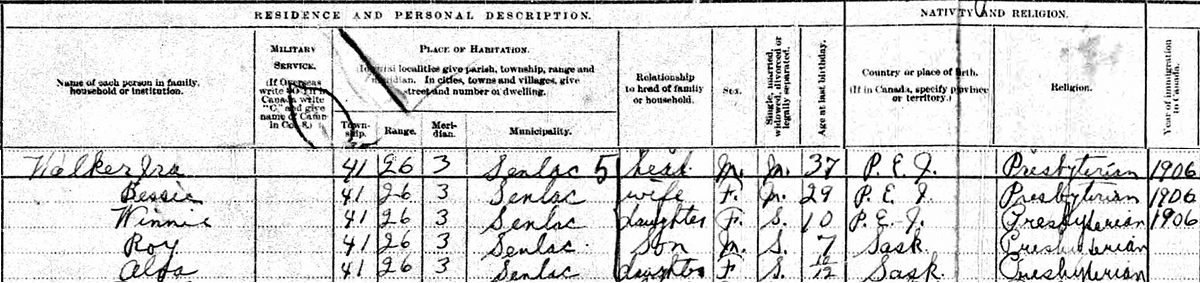 RESIDENCE AND PERSONAL DESCRIPTION.
NATIVITY AND RELIGION.
Name of each person in family, household or institution.
MILITARY SERVICE.
(If Overseas write
Canada write "C." and give name of Camp in Col. 8.)
PLACE OF HABITATION.
(In rural localities give parish, township, range and meridian. In cities, towns and villages, give street and number of dwelling.
Town-ship.
Range.
Meri-dian.
Municipality.
Relationship to head of family or household.
Sex.
Single, married, widowed, divorced or legally separated.
Age at last birthday.
Country or place of birth.
(If in Canada, specify province or territory.)
Religion.
Year of immigration to Canada.
Walker Ira 41 26 3 Senlac 5 head M. M. 37 P. E. I. Presbyterian 1906
Bessie 41 26 3 Senlac wife F. M. 29 P. E. I Presbyterian 1906
Winnie 41 26 3 Senlac daughter F. S. 10 P. E. I. Presbyterian 1906
Roy 41 26 3 Senlac Son M. S. 7 Sask. Presbyterian
41 26 3 Senlac daughter F. S. Sask. Presbyterian